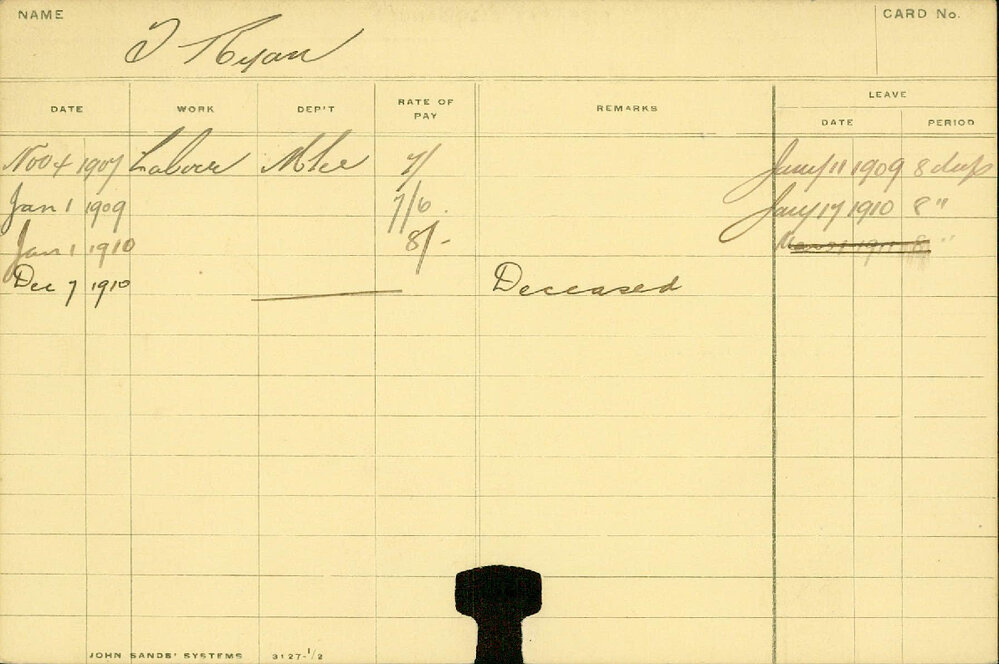 NAME
CARD No.
J Ryan
DATE WORK DEP'T RATE OF PAY REMARKS LEAVE
DATE PERIOD
Nov 4 1907 Labour 7/ Jany 11 1909 8 days
Jan 1 1909 7/6. Jany 17 1910 8 "
Jan 1 1910 8/- "
Dec 7 1910 Deceased
JOHN SANDS' SYSTEMS 3127-1/2